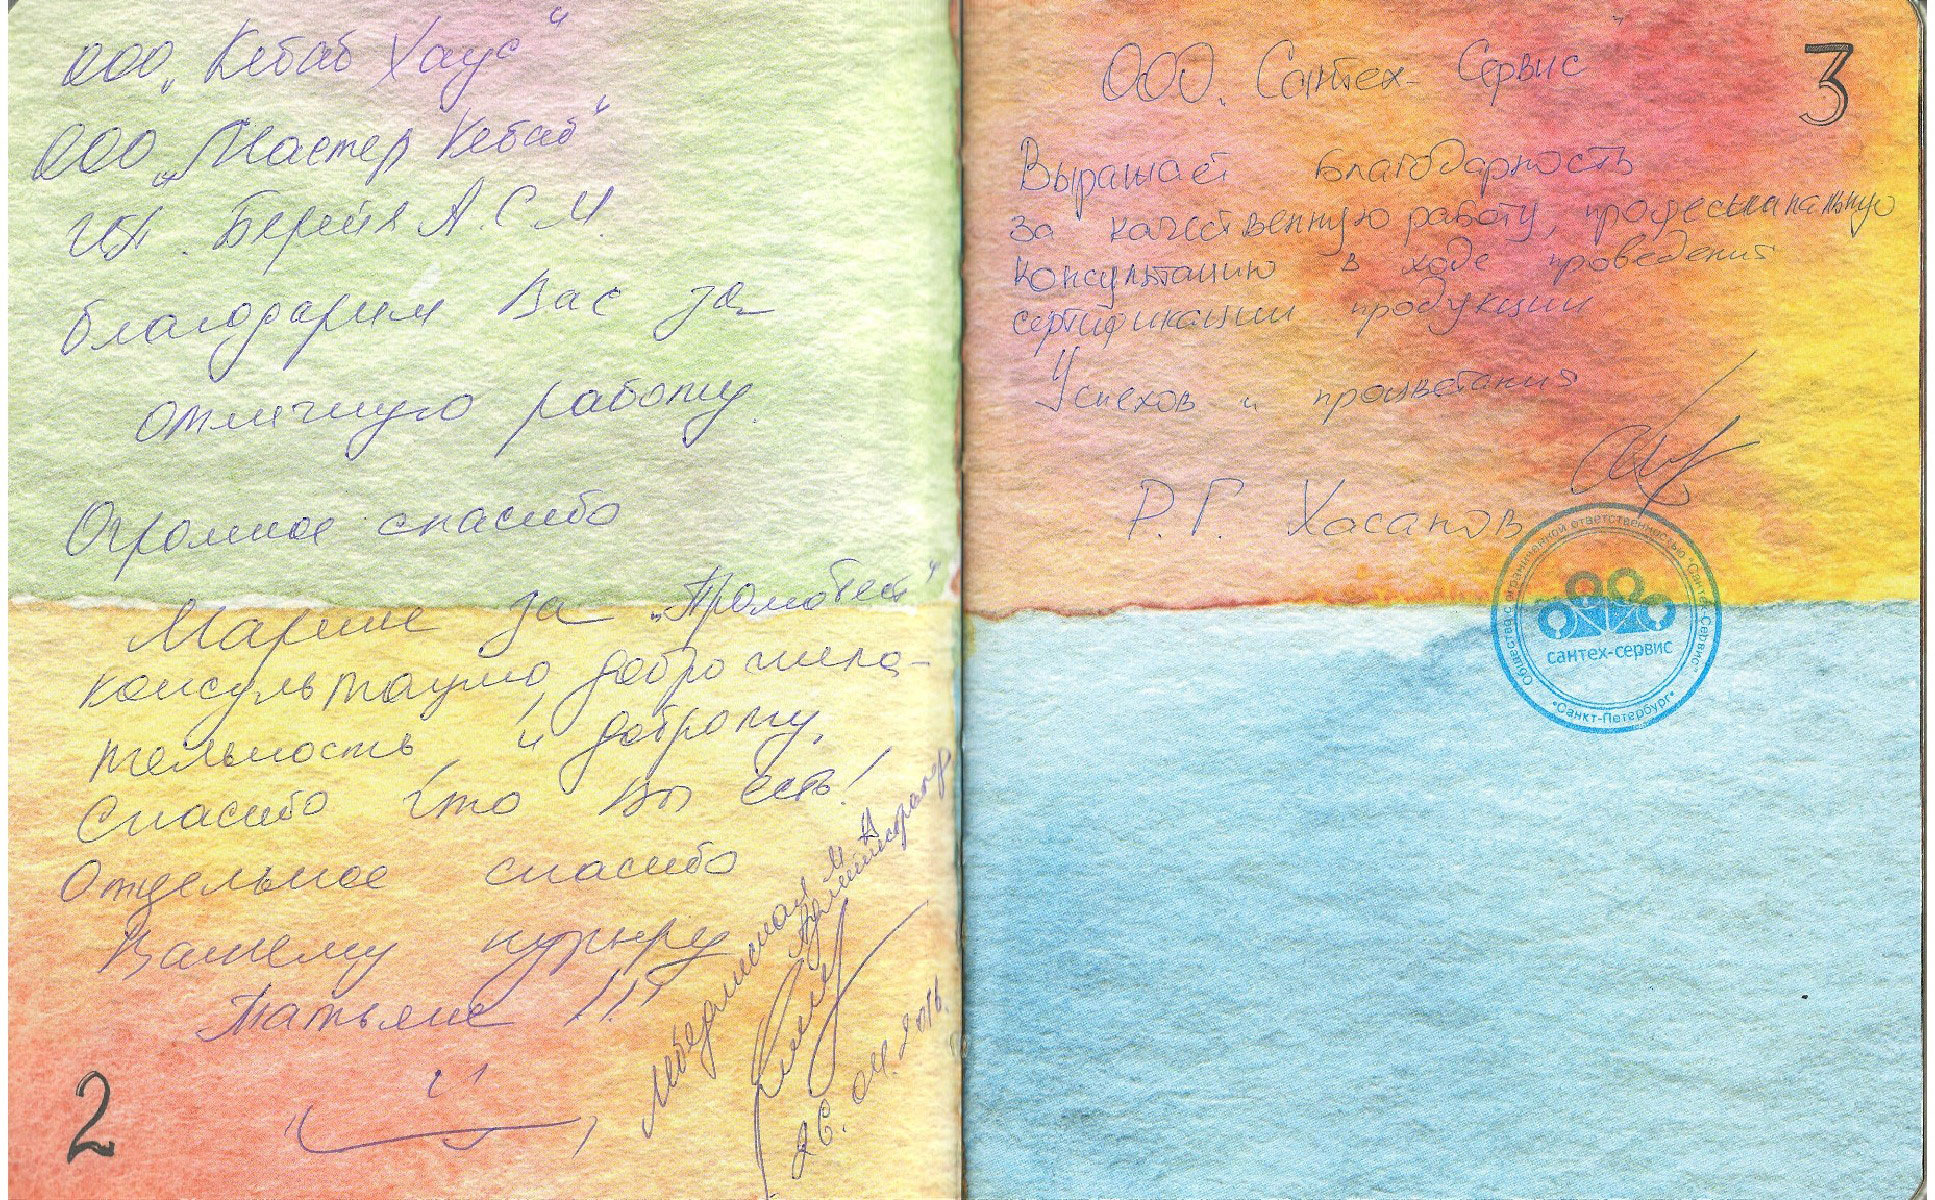 ООО „Кебаб Хаус“
ООО „Мастер Кебаб“
ИП. А.С.М.
благодарим Вас за
отличную работу.
Огромное спасибо
Марине за
консультацию, доброжела-
тельность, и доброту.
Спасибо что Вы есть!
Отдельное спасибо
Вашему курьеру
Татьяне !!!
26.04.2016.
2
3
ООО „Сантех-Сервис“
Выражает благодарность
за качественную работу, професьиинальную
консультацию в ходе проведения
сертификации продукции
Успехов и процветания
Р.Г. Хасанов
Общество с ограниченной ответственностью "Сантех-Сервис"
сантех-сервис
*Санкт-Петербург*